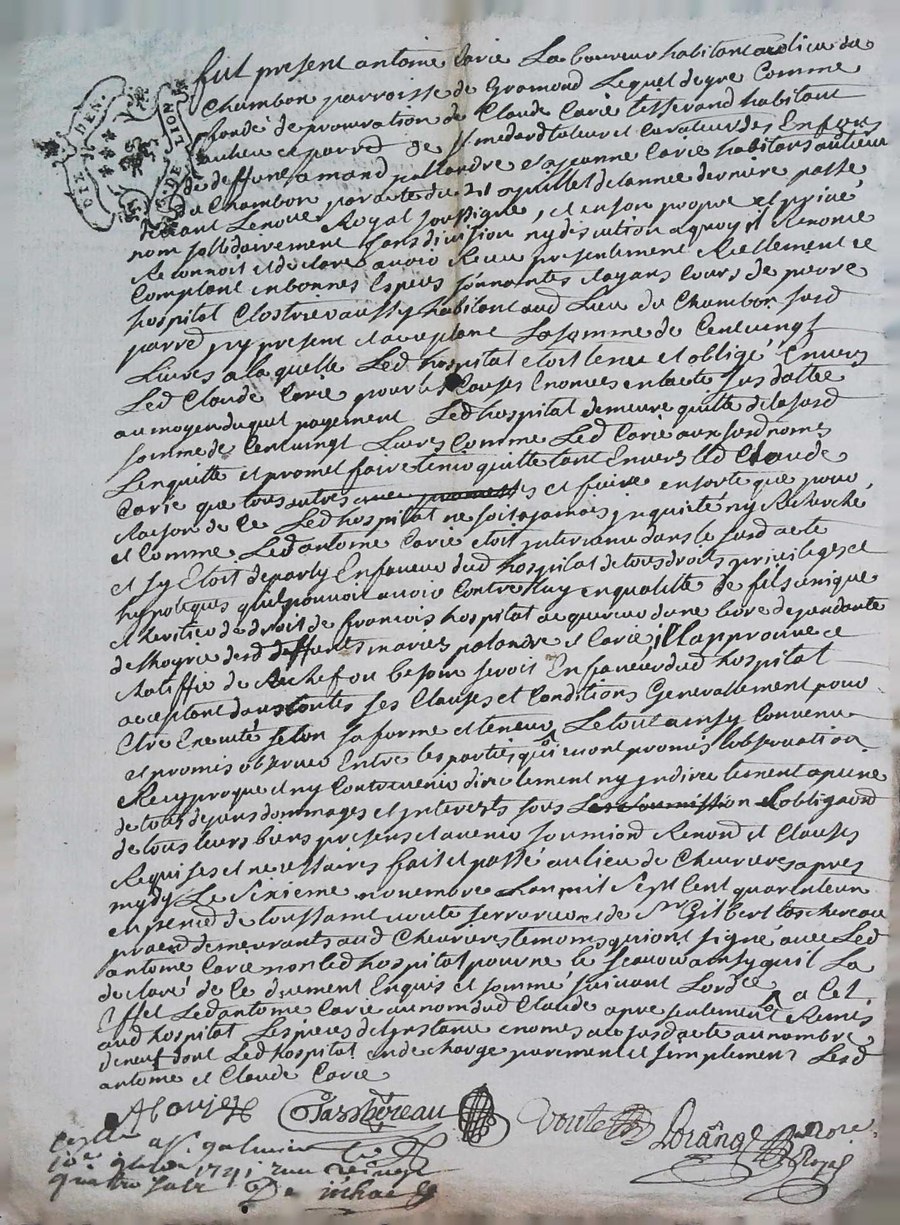 GEN. DE LION
fut present antoine Carie Laboureur habitant au lieu du
Chambon parroisse de Gramond Lequel de gre Comme
fondé de procuration de Claude Carie tisserand habitant
au lieu et parrd de St medard tuteur et Curateur des Enfans
de deffunt amand palandre et a jeanne Carie habitans au lieu
du Chambon par acte du 21 apuillet de lannee derniere passé
devant Lenore Royal soussigné, et en son propre et privé
nom sollidairement sans division ny discution a quoy il Renonce
Reconnoit et declare avoir Receu presentement Reellement et
Comptant en bonnes Especes sonnantes et ayans Cours de pierre
hospital Clostrier aussy habitant aud Lieu du Chambon susd
parrd icy present et acceptant La somme de Cent vingt
Livres a la quelle Led hospital etoit tenu et obligé Envers
Led Claude Carie pour les Causes Enoncees en lacte susdatte
au moyen duquel payement Led hospital demeure quitte de la susd
somme de Cent vingt Livres Comme Led Carie aux susd noms
Lenquitte et promet faire tenir quitte tant Envers led Claude
Carie que tous autres et faire en sorte que pour
Raison de ce Led hospital ne soit a jamais inquieté ny Recherché
et Comme Led antoine Carie etoit intervenu dans le susd acte
et sy Etoit departy En faveur dud hospital de tous droits privileges et
hypoteques quil pouvoit avoir Contre luy en qualitte de fils unique
et heritier de droit de francois hospital acquereur dune terre dependante
de lhoyrie desd deffunts maries palandre et Carie, il approuve et
Ratiffie de Rechef ou besoin seroit En faveur dud hospital
acceptant dans toutes ses Clauses et Conditions Generallement pour
Etre Executé selon sa forme et teneur Le tout ainsy Convenu
et promis observer Entre les parties qui en ont promis lobservation
Recyproque et ny Contrevenir directement ny indirectement a peine
de tous depens dommages et interests sous Lobligaond
de tous leurs biens presens et avenir soumiond Renond et Clauses
Requises et necessaires fait et passé au lieu de Chevrieres apres
mydy Le sixieme novembre Lan mil sept Cent quarente un
en presence de toussaint voute serrurier et de Sr Gilbert Paschereau
pratd demeurants aud Chevrieres temoins qui ont signé avec Led
antoine Carie non led hospital pour ne le scavoir ainsy quil La
declaré de ce duement Enquis et sommé suivant Lordce a Cet
Effet Led antoine Carie au nom dud Claude a presentement Remis
aud hospital Les pieces de au susd acte au nombre
de neuf dont Led hospital en decharge purement et simplement Lesd
antoine et Claude Carie
Paschereau voute Lorange nore Royal
a St galmier
1741
quatre sols